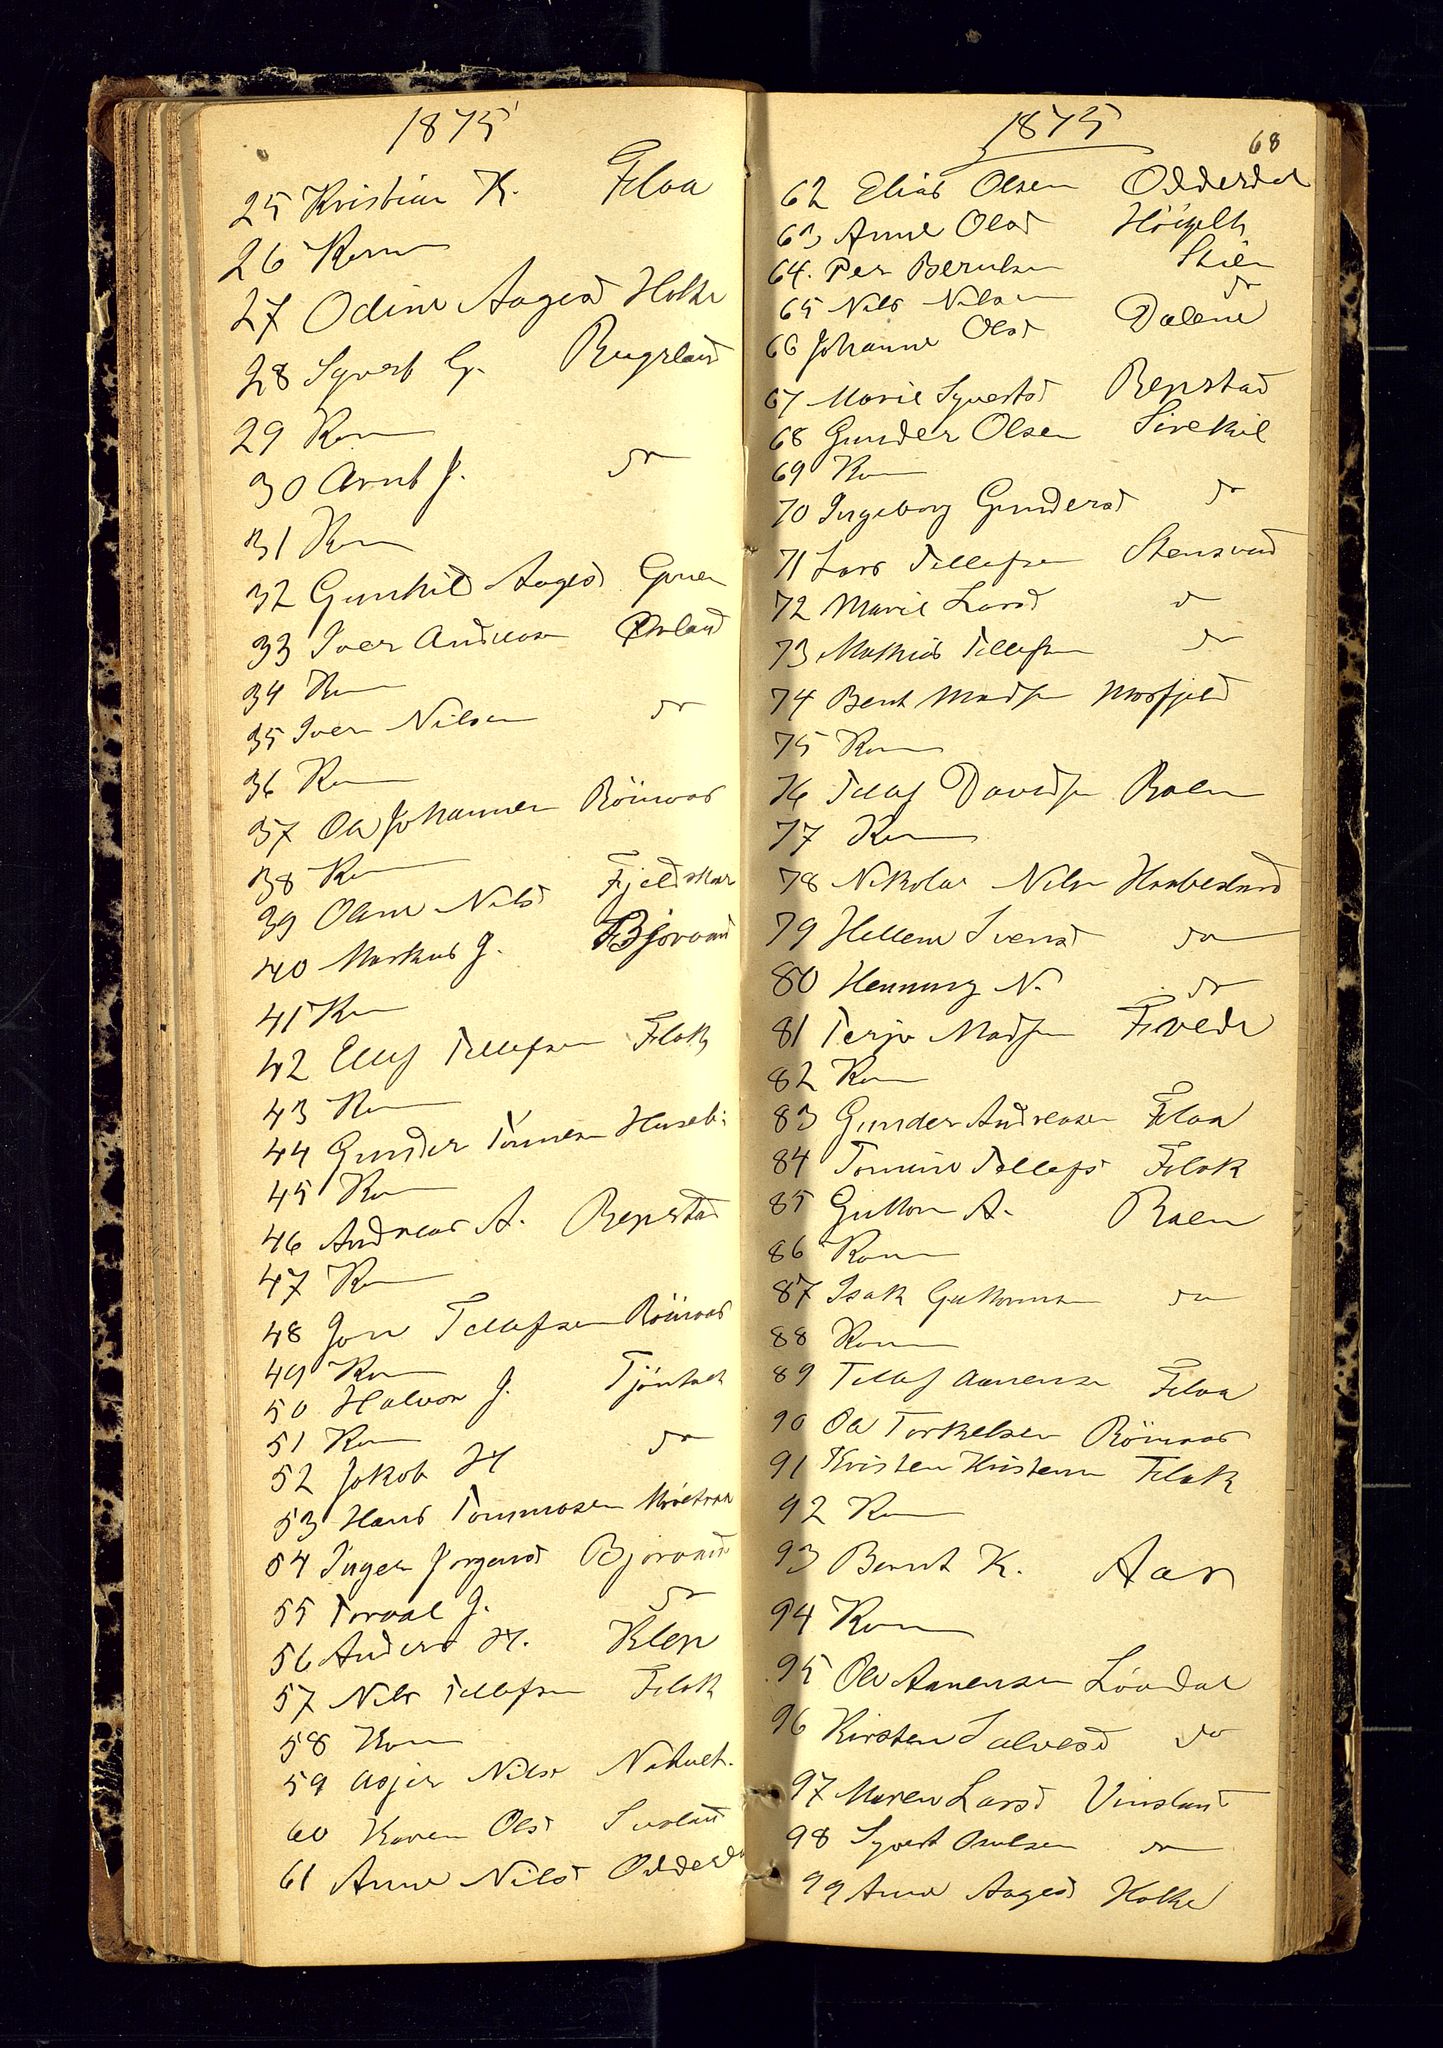 1875
25 Kristian K. Flaa
26 Kone
27 Odine Aagesd Holke
28 Syvert G. Rugsland
29 Kone
30 Arnt J. do
31 Kone
32 Gunhild Aagesd
33 Iver Andreasen
34 Kone
35 Iver Nilsen do
36 Kone
37 Ole Johannesen Röinaas
38 Kone
39 Olene Nilsd Fjeldskaar
40 Markus J. Bjorvand
41 Kone
42 Ellef Tellefsen Flak
43 Kone
44 Gunder Tönnesen
45 Kone
46 Andreas A. Repstad
47 Kone
48 Jon Tellefsen Röinaas
49 Kone
50 Halvor J.
51 Kone
52 Jakob H do
53 Hans Tommasen
54 Inger Jörgensd Bjorvand
55 Torval J. do
56 Anders H. Klep
57 Nils Tellefsen Flak
58 Kone
59 Asjer Nilsen
60 Karen Olsd
61 Anne Nilsd Odderdal
1875
68
62 Elias Olsen Odderdal
63 Anne Olsd
64. Per Berntsen Stien
65 Nils Nilsen do
66 Johanne Olsd Dalene
67 Marie Syvertsd Repstad
68 Gunder Olsen
69 Kone
70 Ingeborg Gundersd do
71 Lars Tellefsen
72 Marie Larsd do
73 Mathias Tellefsen do
74 Bent Madsen Mosfjeld
75 Kone
76 Tellef Davidsen Raen
77 Kone
78 Nikolai Nilsen Haabesland
79 Hellene Svensd do
80 Henning N. do
81 Terje Madsen Tvede
82 Kone
83 Gunder Andreasen Flaa
84 Tomine Tellefsd Flak
85 Guttorm A. Raen
86 Kone
87 Isak Guttormsen do
88 Kone
89 Tellef Aanensen Flaa
90 Ole Torkelsen Röinaas
91 Kristen Kristensen Flak
92 Kone
93 Bernt K. Aas
94 Kone
95 Ole Aanensen Lövdal
96 Kirsten Salvesd do
97 Maren Larsd Vinsland
98 Syvert Osulsen do
99 Anne Aagesd Holke